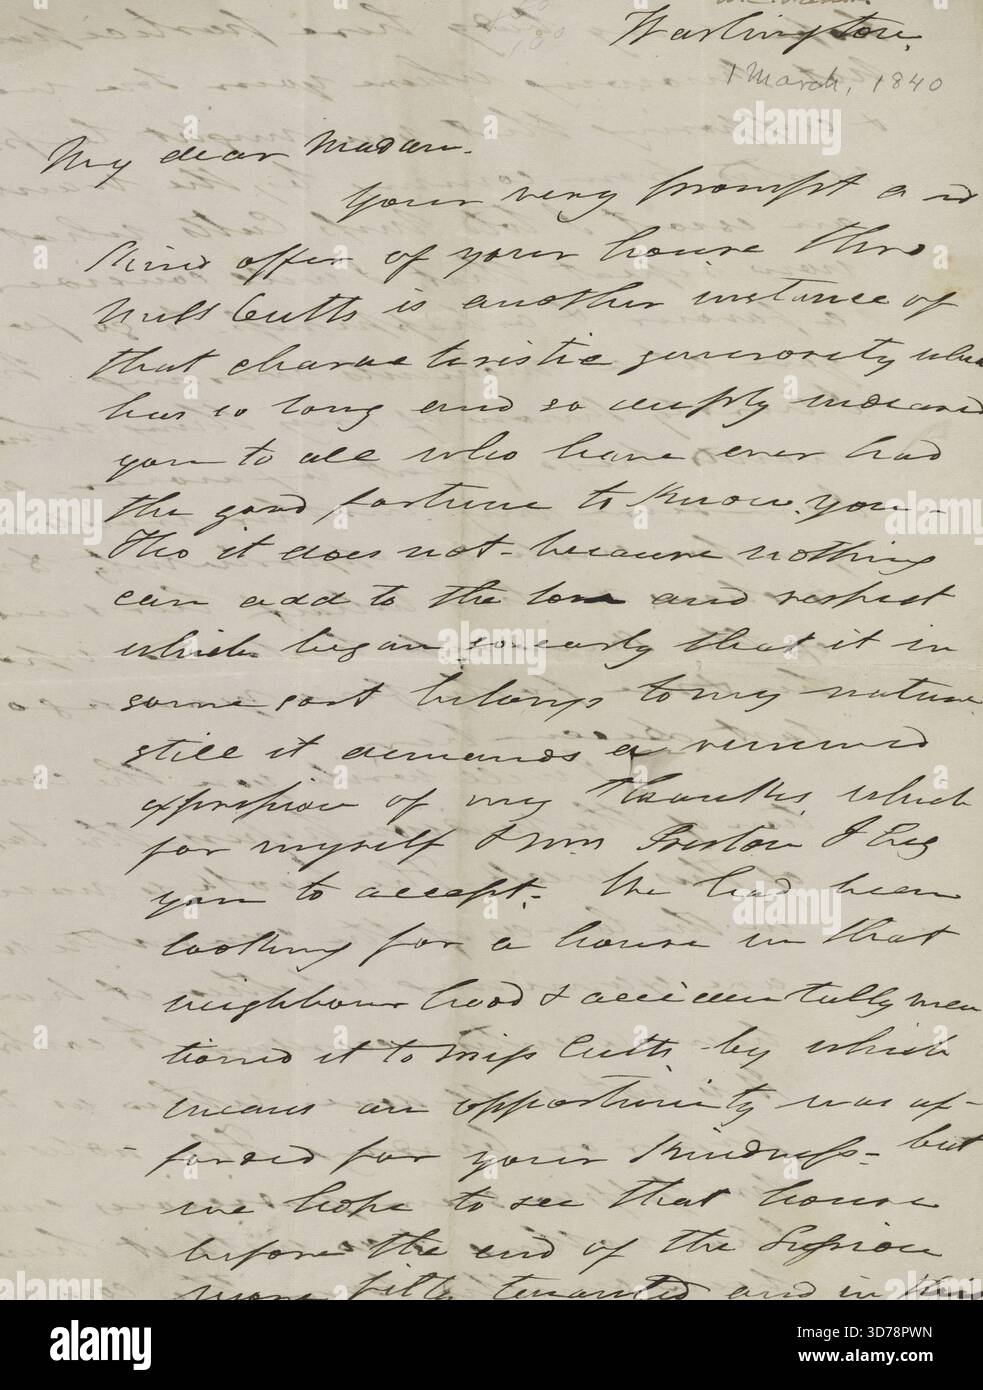 Washington.
1 March, 1840
My dear Madam.
Your very prompt and
Kind offer of your house thro
Miss Cutts is another instance of
that characteristic generosity which
has so long and so deeply endeared
you to all who have ever had
the good fortune to Know you -
Tho it does not - because nothing
can add to the love and respect
which began so early that it in
some sort belongs to my nature
still it demands a renewed
expression of my thanks which
for myself & Mrs Preston I beg
you to accept. We had been
looking for a house in that
neighbourhood & accidentally men
tioned it to Miss Cutts - by which
means an opportunity was af-
forded for your Kindness - but
we hope to see that house
before the end of the Session
more fitly tenanted and in
alamy
Image ID: 3D78PWN
www.alamy.com